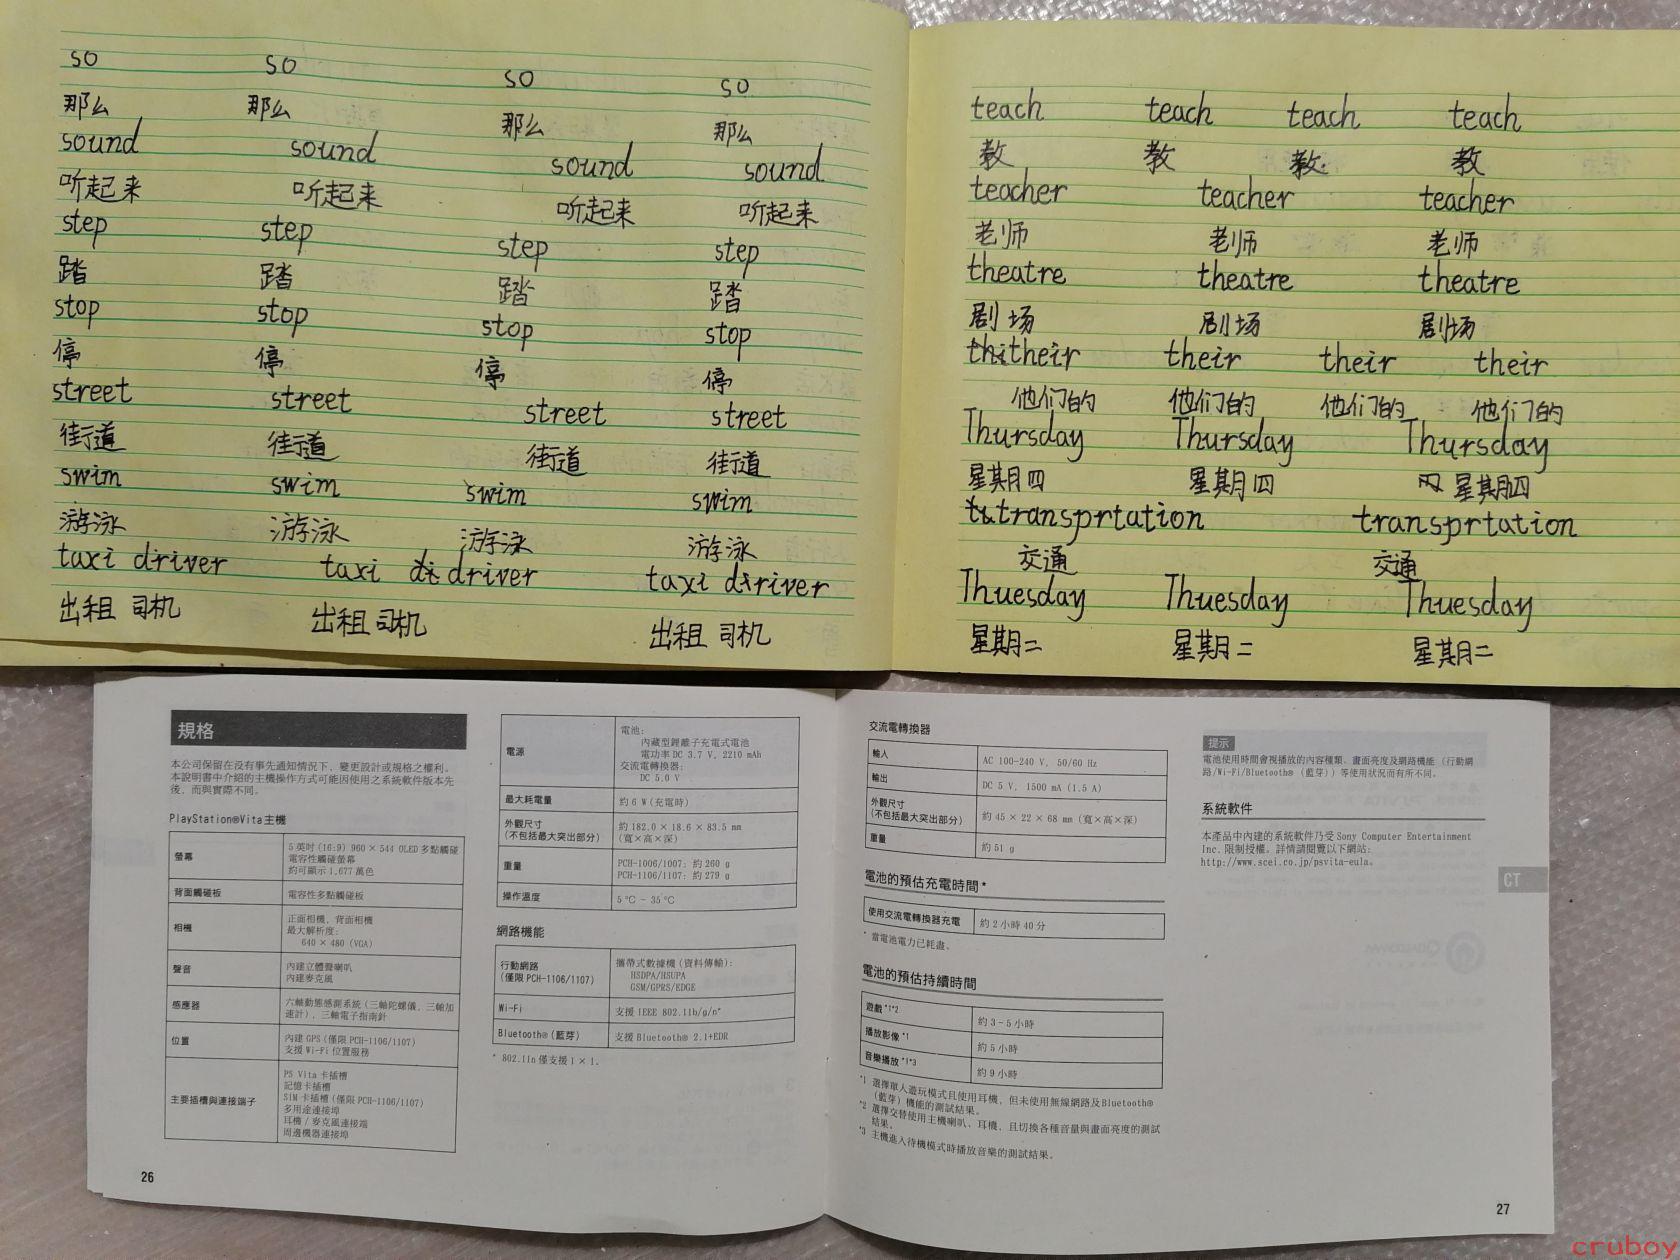 so so so so
那么 那么 那么 那么
sound sound sound sound
听起来 听起来 听起来 听起来
step step step step
踏 踏 踏 踏
stop stop stop stop
停 停 停 停
street street street street
街道 街道 街道 街道
swim swim swim swim
游泳 游泳 游泳 游泳
taxi driver taxi driver taxi driver
出租 司机 出租 司机 出租 司机
teach teach teach teach
教 教 教 教
teacher teacher teacher
老师 老师 老师
theatre theatre theatre
剧场 剧场 剧场
their their their their
他们的 他们的 他们的 他们的
Thursday Thursday Thursday
星期四 星期四 星期四
transprtation transprtation
交通 交通
Thuesday Thuesday Thuesday
星期二 星期二 星期二
規格
本公司保留在没有事先通知情況下，變更設計或規格之權利。
本說明書中介紹的主機操作方式可能因使用之系統軟件版本先
後，而與實際不同。
PlayStation®Vita主機
螢幕
5 英吋 (16:9) 960 × 544 OLED 多點觸碰
電容性觸碰螢幕
約可顯示 1,677 萬色
背面觸碰板
電容性多點觸碰板
相機
正面相機、背面相機
最大解析度：
640 × 480 (VGA)
聲音
內建立體聲喇叭
內建麥克風
感應器
六軸動態感測系統（三軸陀螺儀、三軸加
速計），三軸電子指南針
位置
內建 GPS（僅限 PCH-1106/1107）
支援 Wi-Fi 位置服務
主要插槽與連接端子
PS Vita 卡插槽
記憶卡插槽
SIM 卡插槽（僅限 PCH-1106/1107）
多用途連接埠
耳機 / 麥克風連接端
周邊機器連接埠
26
電源
電池：
內藏型鋰離子充電式電池
電功率 DC 3.7 V, 2210 mAh
交流電轉換器：
DC 5.0 V
最大耗電量
約 6 W（充電時）
外觀尺寸
（不包括最大突出部分）
約 182.0 × 18.6 × 83.5 mm
（寬×高×深）
重量
PCH-1006/1007：約 260 g
PCH-1106/1107：約 279 g
操作溫度
5 ℃ - 35 ℃
網路機能
行動網路
（僅限 PCH-1106/1107）
攜帶式數據機（資料傳輸）：
HSDPA/HSUPA
GSM/GPRS/EDGE
Wi-Fi
支援 IEEE 802.11b/g/n*
Bluetooth®（藍芽）
支援 Bluetooth® 2.1+EDR
* 802.11n 僅支援 1 × 1。
交流電轉換器
輸入
AC 100-240 V, 50/60 Hz
輸出
DC 5 V, 1500 mA (1.5 A)
外觀尺寸
（不包括最大突出部分）
約 45 × 22 × 68 mm（寬×高×深）
重量
約 51 g
電池的預估充電時間*
使用交流電轉換器充電
約 2 小時 40 分
* 當電池電力已耗盡。
電池的預估持續時間
遊戲 *1*2
約 3 - 5 小時
播放影像 *1
約 5 小時
音樂播放 *1*3
約 9 小時
*1 選擇單人遊玩模式且使用耳機，但未使用無線網路及Bluetooth®
（藍芽）機能的測試結果。
*2 選擇交替使用主機喇叭、耳機，且切換各種音量與畫面亮度的測試
結果。
*3 主機進入待機模式時播放音樂的測試結果。
提示
電池使用時間會視播放的內容種類、畫面亮度及網路機能（行動網
路/Wi-Fi/Bluetooth®（藍芽））等使用狀況而有所不同。
系統軟件
本產品中內建的系統軟件乃受 Sony Computer Entertainment
Inc. 限制授權。詳情請閱覽以下網站：
http://www.scei.co.jp/psvita-eula。
CT
27
cruboy